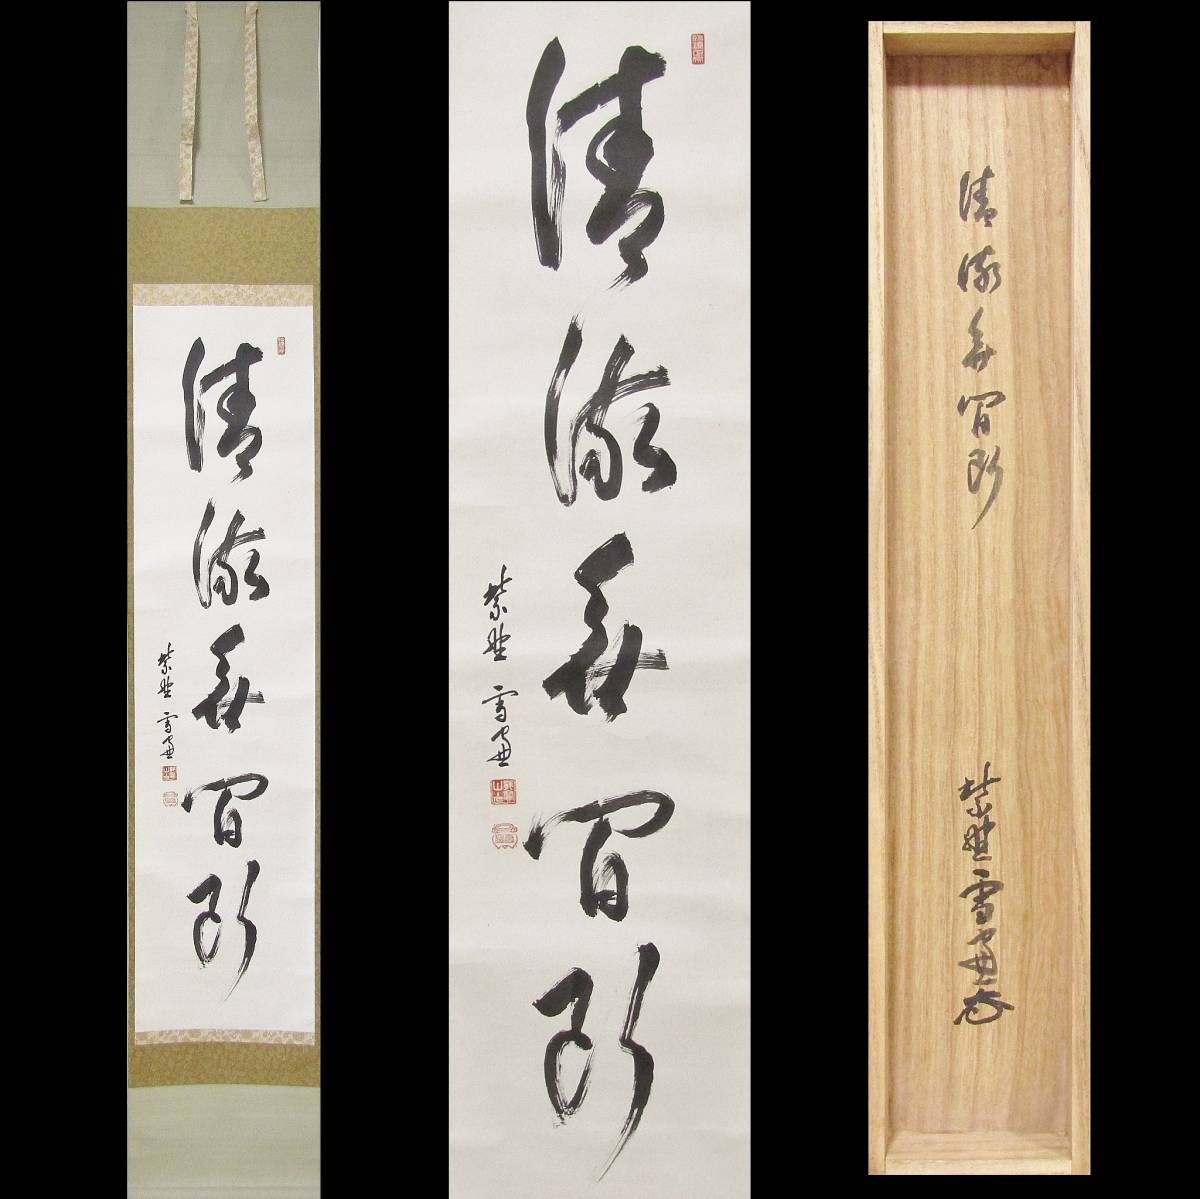 清流無間断
紫野 雪窓
清流無間断
紫野 雪窓
清流無間断
紫野雪窓